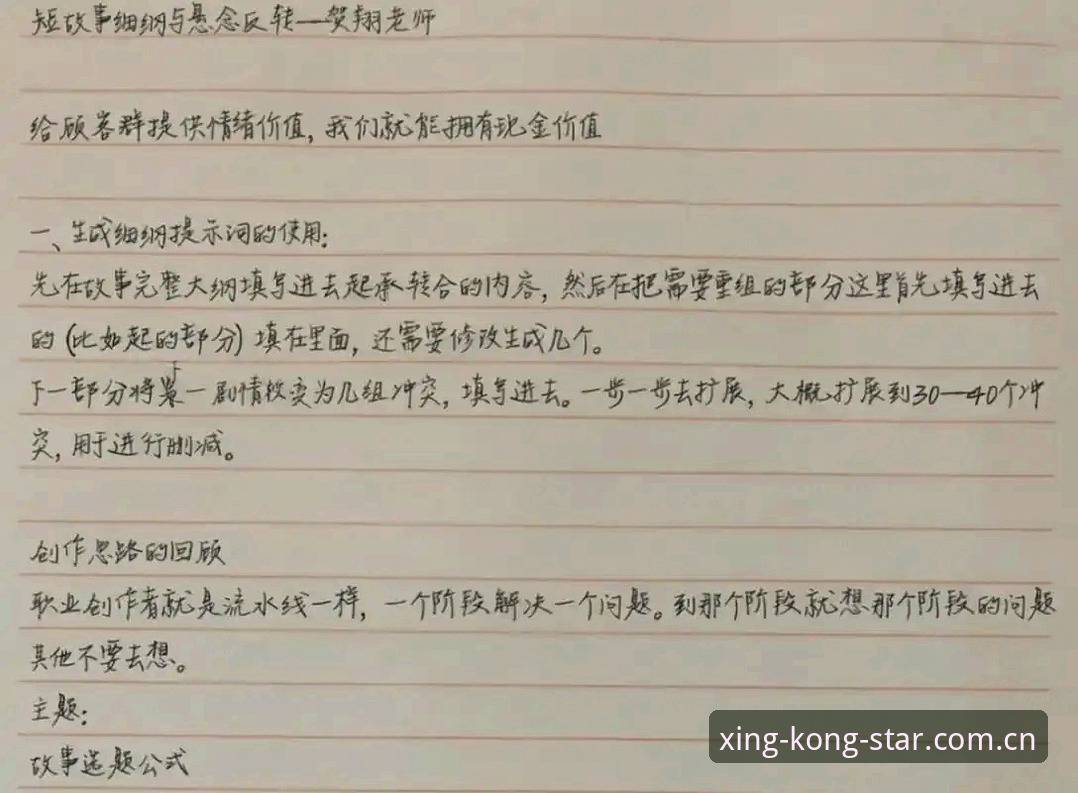 短故事细纲与悬念反转—贺翔老师
给顾客群提供情绪价值，我们就能拥有现金价值
一、生成细纲提示词的使用：
先在故事完整大纲填写进去起承转合的内容，然后在把需要重组的部分这里首先填写进去
的（比如起的部分）填在里面，还需要修改生成几个。
下一部分将某一剧情转变为几组冲突，填写进去。一步一步去扩展，大概扩展到30—40个冲
突，用于进行删减。
创作思路的回顾
职业创作者就是流水线一样，一个阶段解决一个问题。到那个阶段就想那个阶段的问题
其他不要去想。
主题：
故事选题公式
xing-kong-star.com.cn